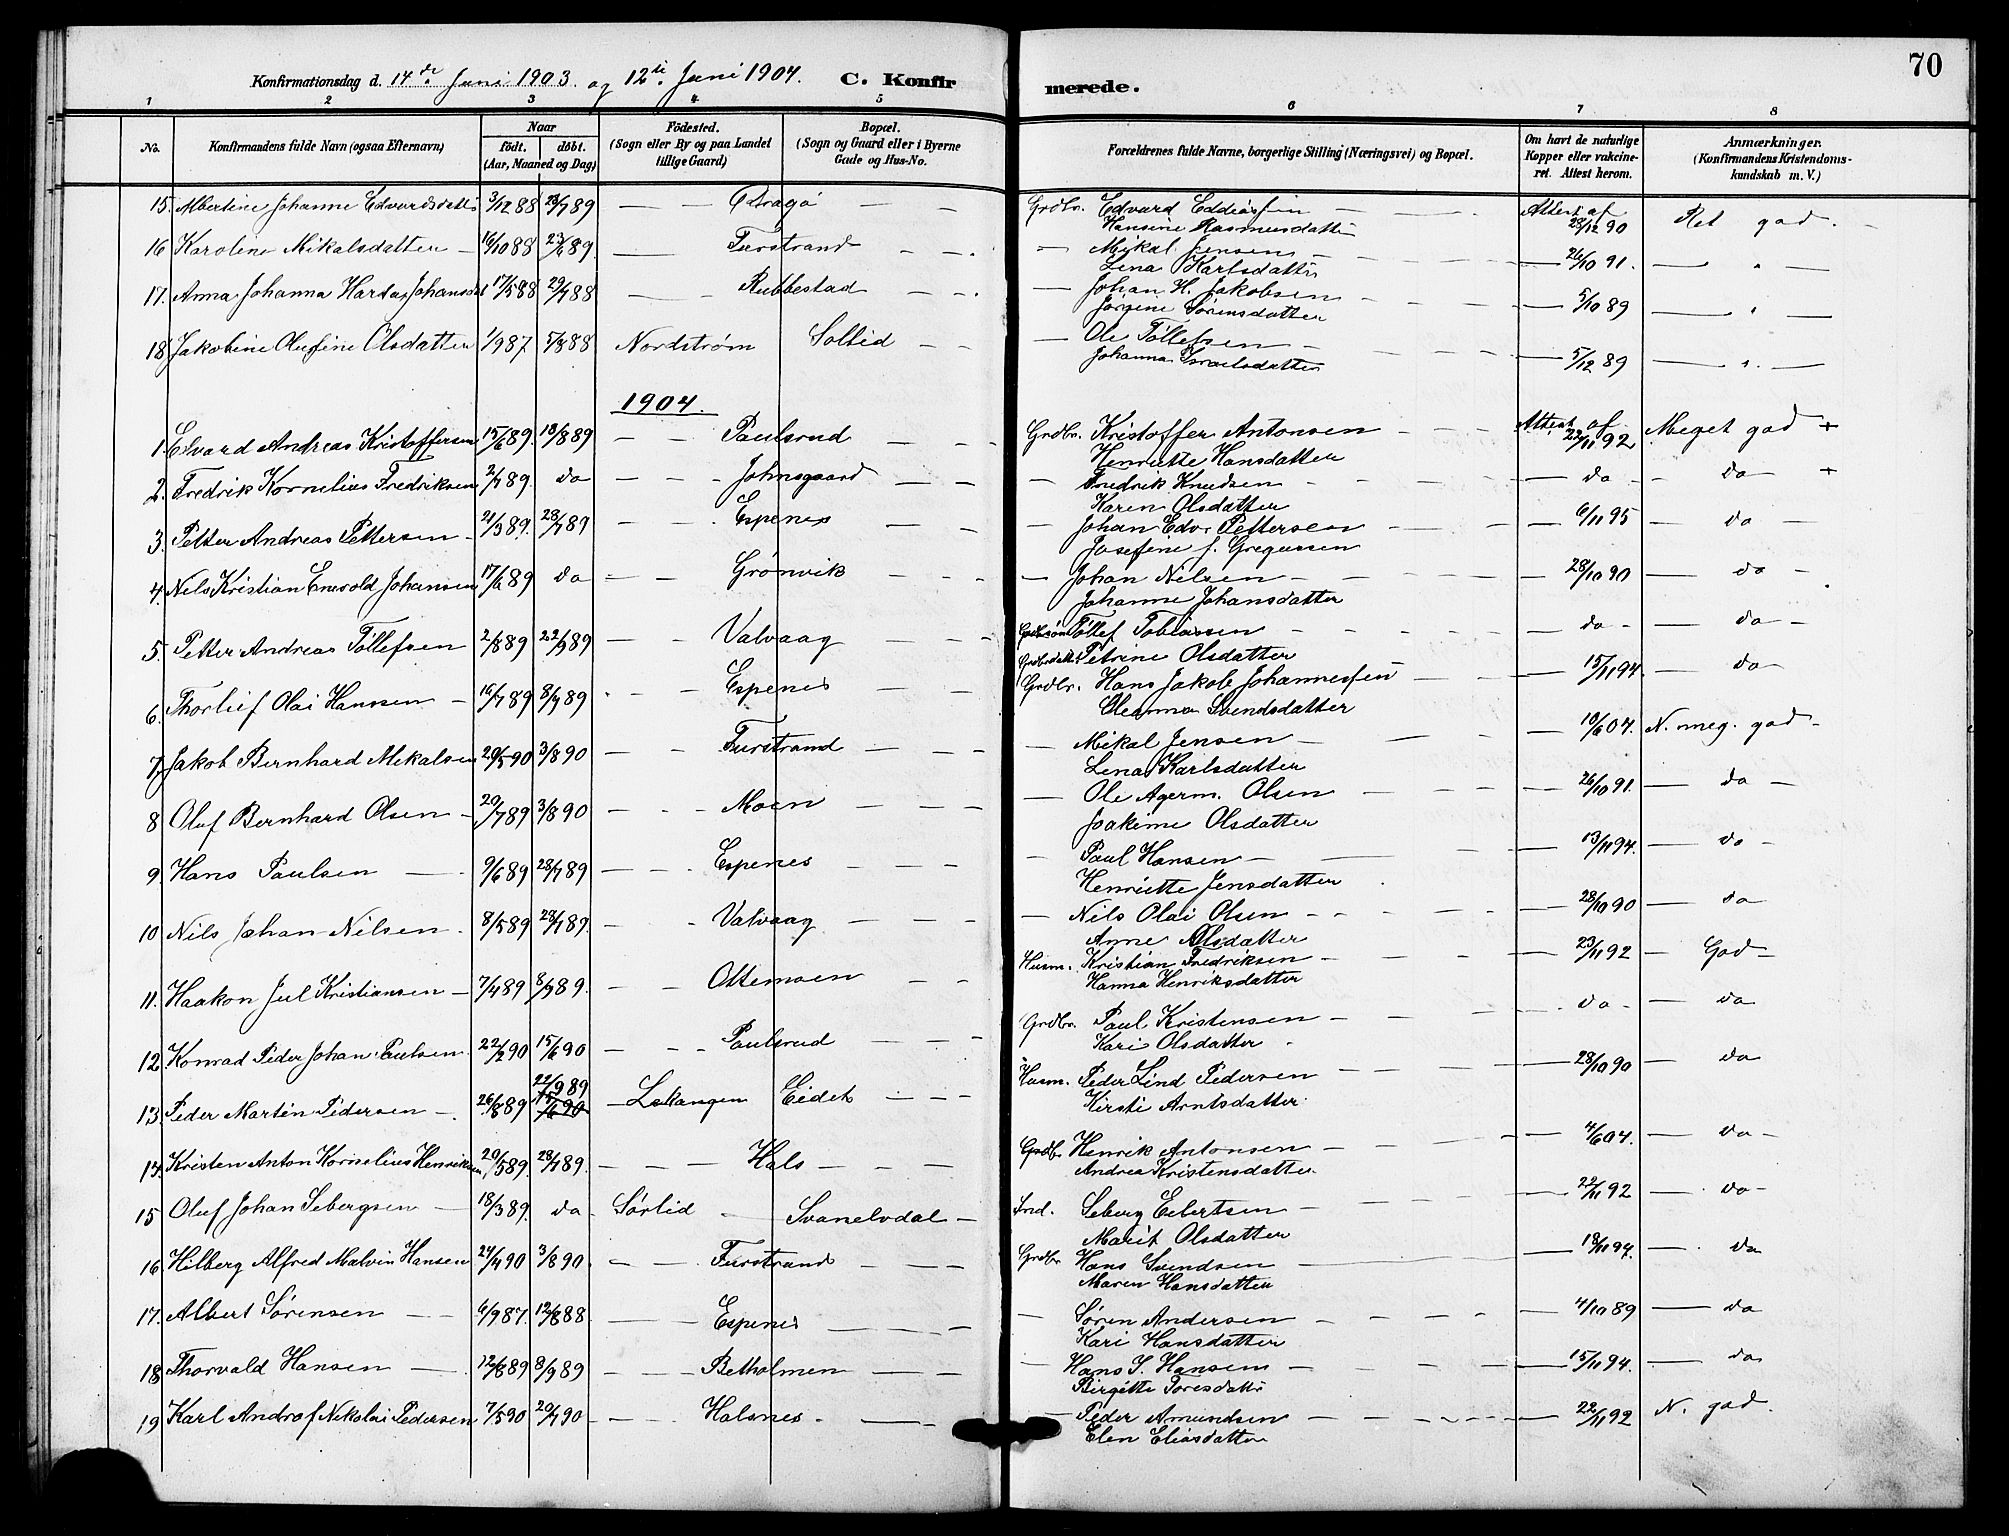 70
Konfirmationsdag d. 14de Juni 1903 og 12te Juni 1904. C. Konfirmerede.
1 2 3 4 5 6 7 8
No. Konfirmandens fulde Navn (ogsaa Efternavn) Naar født. døbt. (Aar, Maaned og Dag) Fødested. (Sogn eller By og paa Landet tillige Gaard) Bopæl. (Sogn og Gaard eller i Byerne Gade og Hus-No. Forældrenes fulde Navne, borgerlige Stilling (Næringsvei) og Bopæl. Om havt de naturlige Kopper eller vakcineret. Attest herom. Anmærkninger. (Konfirmandens Kristendomskundskab m. V.)
15. Albertine Johanne Edvardsdatter 3/12 88 28/7 89 — — — Grdbr. Edvard Eddiassen Attest af 28/12 90 Ret god.
Hansine Rasmusdatter
16 Karoline Mikalsdatter 16/10 88 23/6 89 — Furstrand — Mikal Jensen — 26/10 91. — " —
Lena Karlsdatter
17. Anna Johanna Johansdat 17/5 88 29/7 88 — Rubbestad — Johan H. Jakobsen — 5/10 89 — " —
Jørgine Sørensdatter
18 Jakobine Olufine Olsdatter 1/9 87 5/8 88 Nordstrøm Sollid — Ole Tøllefsen — 5/12 89 — " —
Johanna Israelsdatter
1904.
1. Edvard Andreas Kristoffersen 15/6 89. 18/8 89 — — Paulsrud Grdbr. Kristoffer Antonsen — Attest af 22/11 92 Meget god +
Henriette Hansdatter
2. Fredrik Kornelius Fredriksen 2/7 89. do — — Johnsgaard — Fredrik Knudsen — do — do +
Karen Olsdatter
3. Petter Andreas Pettersen 21/3 89. 28/7 89 — — Espenes — Johan Edv. Pettersen — 6/11 95 — do —
Josefine f. Gregersen
4. Nils Kristian Enevold Johansen 17/6 89 do — — Grønvik — Johan Nilsen — 28/10 90 — do —
Johanne Johansdatter
5. Petter Andreas Tøllefsen 2/8 89 22/9 89 — — Valvaag Grdbrsøn Tøllef Tobiassen — do — do —
Grdbrdatter Petrine Olsdatter
6. Thorlief Olai Hansen 16/7 89 8/9 89 — — Espenes Grdbr. Hans Jakob Johannessen — 15/11 94. — do —
Eleanna Svendsdatter
7. Jakob Bernhard Mikalsen 20/5 90 3/8 90 — — Furstrand — Mikal Jensen — 10/6 04. N. meg. god —
Lena Karlsdatter
8 Oluf Bernhard Olsen 20/7 89 3/8 90 — — Moen — Ole Agerm. Olsen — 26/10 91. — do —
Joakime Olsdatter
9. Hans Paulsen 9/6 89 28/7 89 — — Espenes — Paul Hansen — 13/11 94. — do —
Henriette Jensdatter
10 Nils Johan Nilsen 8/5 89 28/7 89. — — Valvaag — Nils Olai Olsen — 28/10 90 — do
Anne Olsdatter
11. Haakon Jul Kristiansen 7/4 89 8/9 89. — — Ottemoen Husm. Kristian Fredriksen — 23/11 92 — God —
Hanna Henriksdatter
12 Konrad Peder Johan Paulsen 22/2 90 15/6 90 — — Paulsrud Grdbr. Paul Kristensen — do — do
Kari Olsdatter
13. Peder Martin Pedersen 26/8 89 22/9 89 15/6 90 — Lakangen Eidet Husm. Peder Lind Pedersen — 28/10 90 — do
Kirsti Arntsdatter
14. Kristen Anton Kornelius Henriksen 20/5 89. 28/7 89. — — Hals — Grdbr Henrik Antonsen — 4/6 04. — do —
Andrea Kristensdatter
15 Oluf Johan Sebergsen 18/3 89. do Sørlid Svanelvdal — Ind. Seberg Eilertsen — 22/11 92 — do —
Marit Olsdatter
16. Hilberg Alfred Malvin Hansen 24/4 90 3/8 90. — — Furstrand — Grdbr Hans Svendsen — 18/11 94. — do
Maren Hansdatter
17. Albert Sørensen 6/9 87. 12/8 88 — — Espenes — Søren Andersen — 4/10 89 — do
Kari Hansdatter
18 Thorvald Hansen 12/8 89 8/9 89 — — Betholmen — Hans J. Hansen — 15/11 94. — do
Birgitte Toresdatter
19 Karl Androf Nikolai Pedersen 7/5 90 20/7 90 — — Halsnes. — Peder Amundsen — 22/11 92 N. god.
Elen Eliasdatter